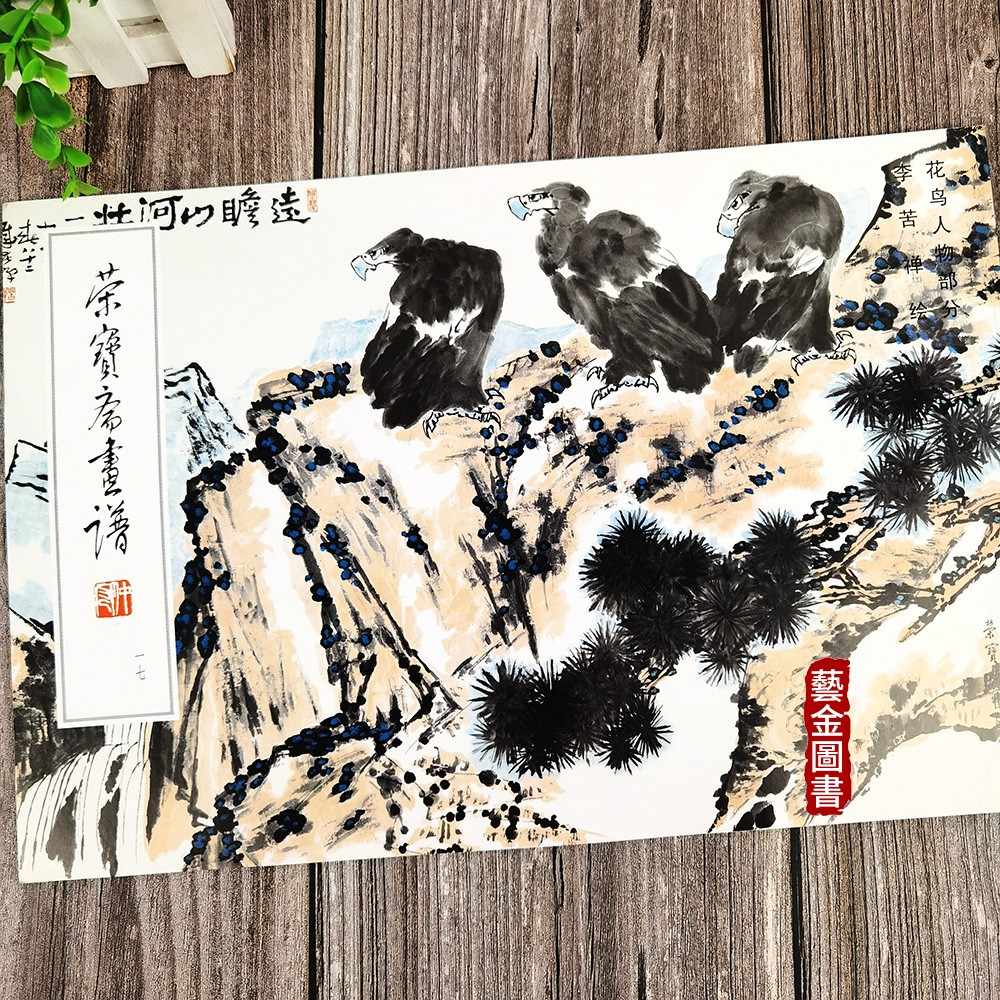 花鸟人物部分
李苦禅绘
遠瞻山河壮
荣寶斋畫谱
一七
藝金圖書